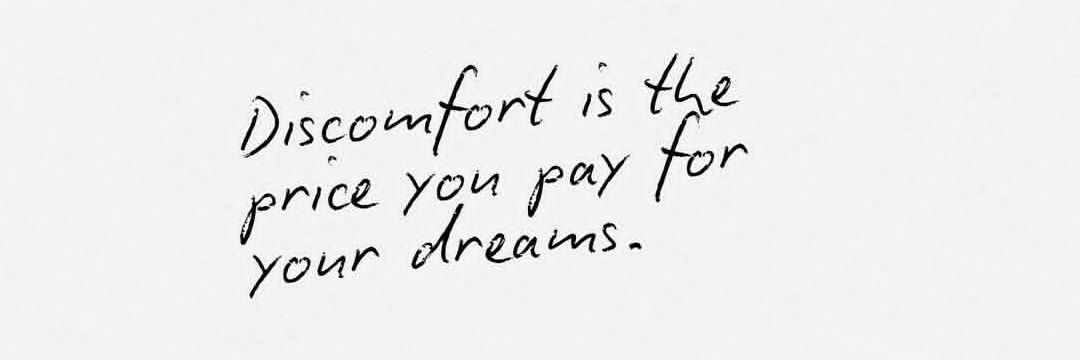 Discomfort is the
price you pay for
your dreams.